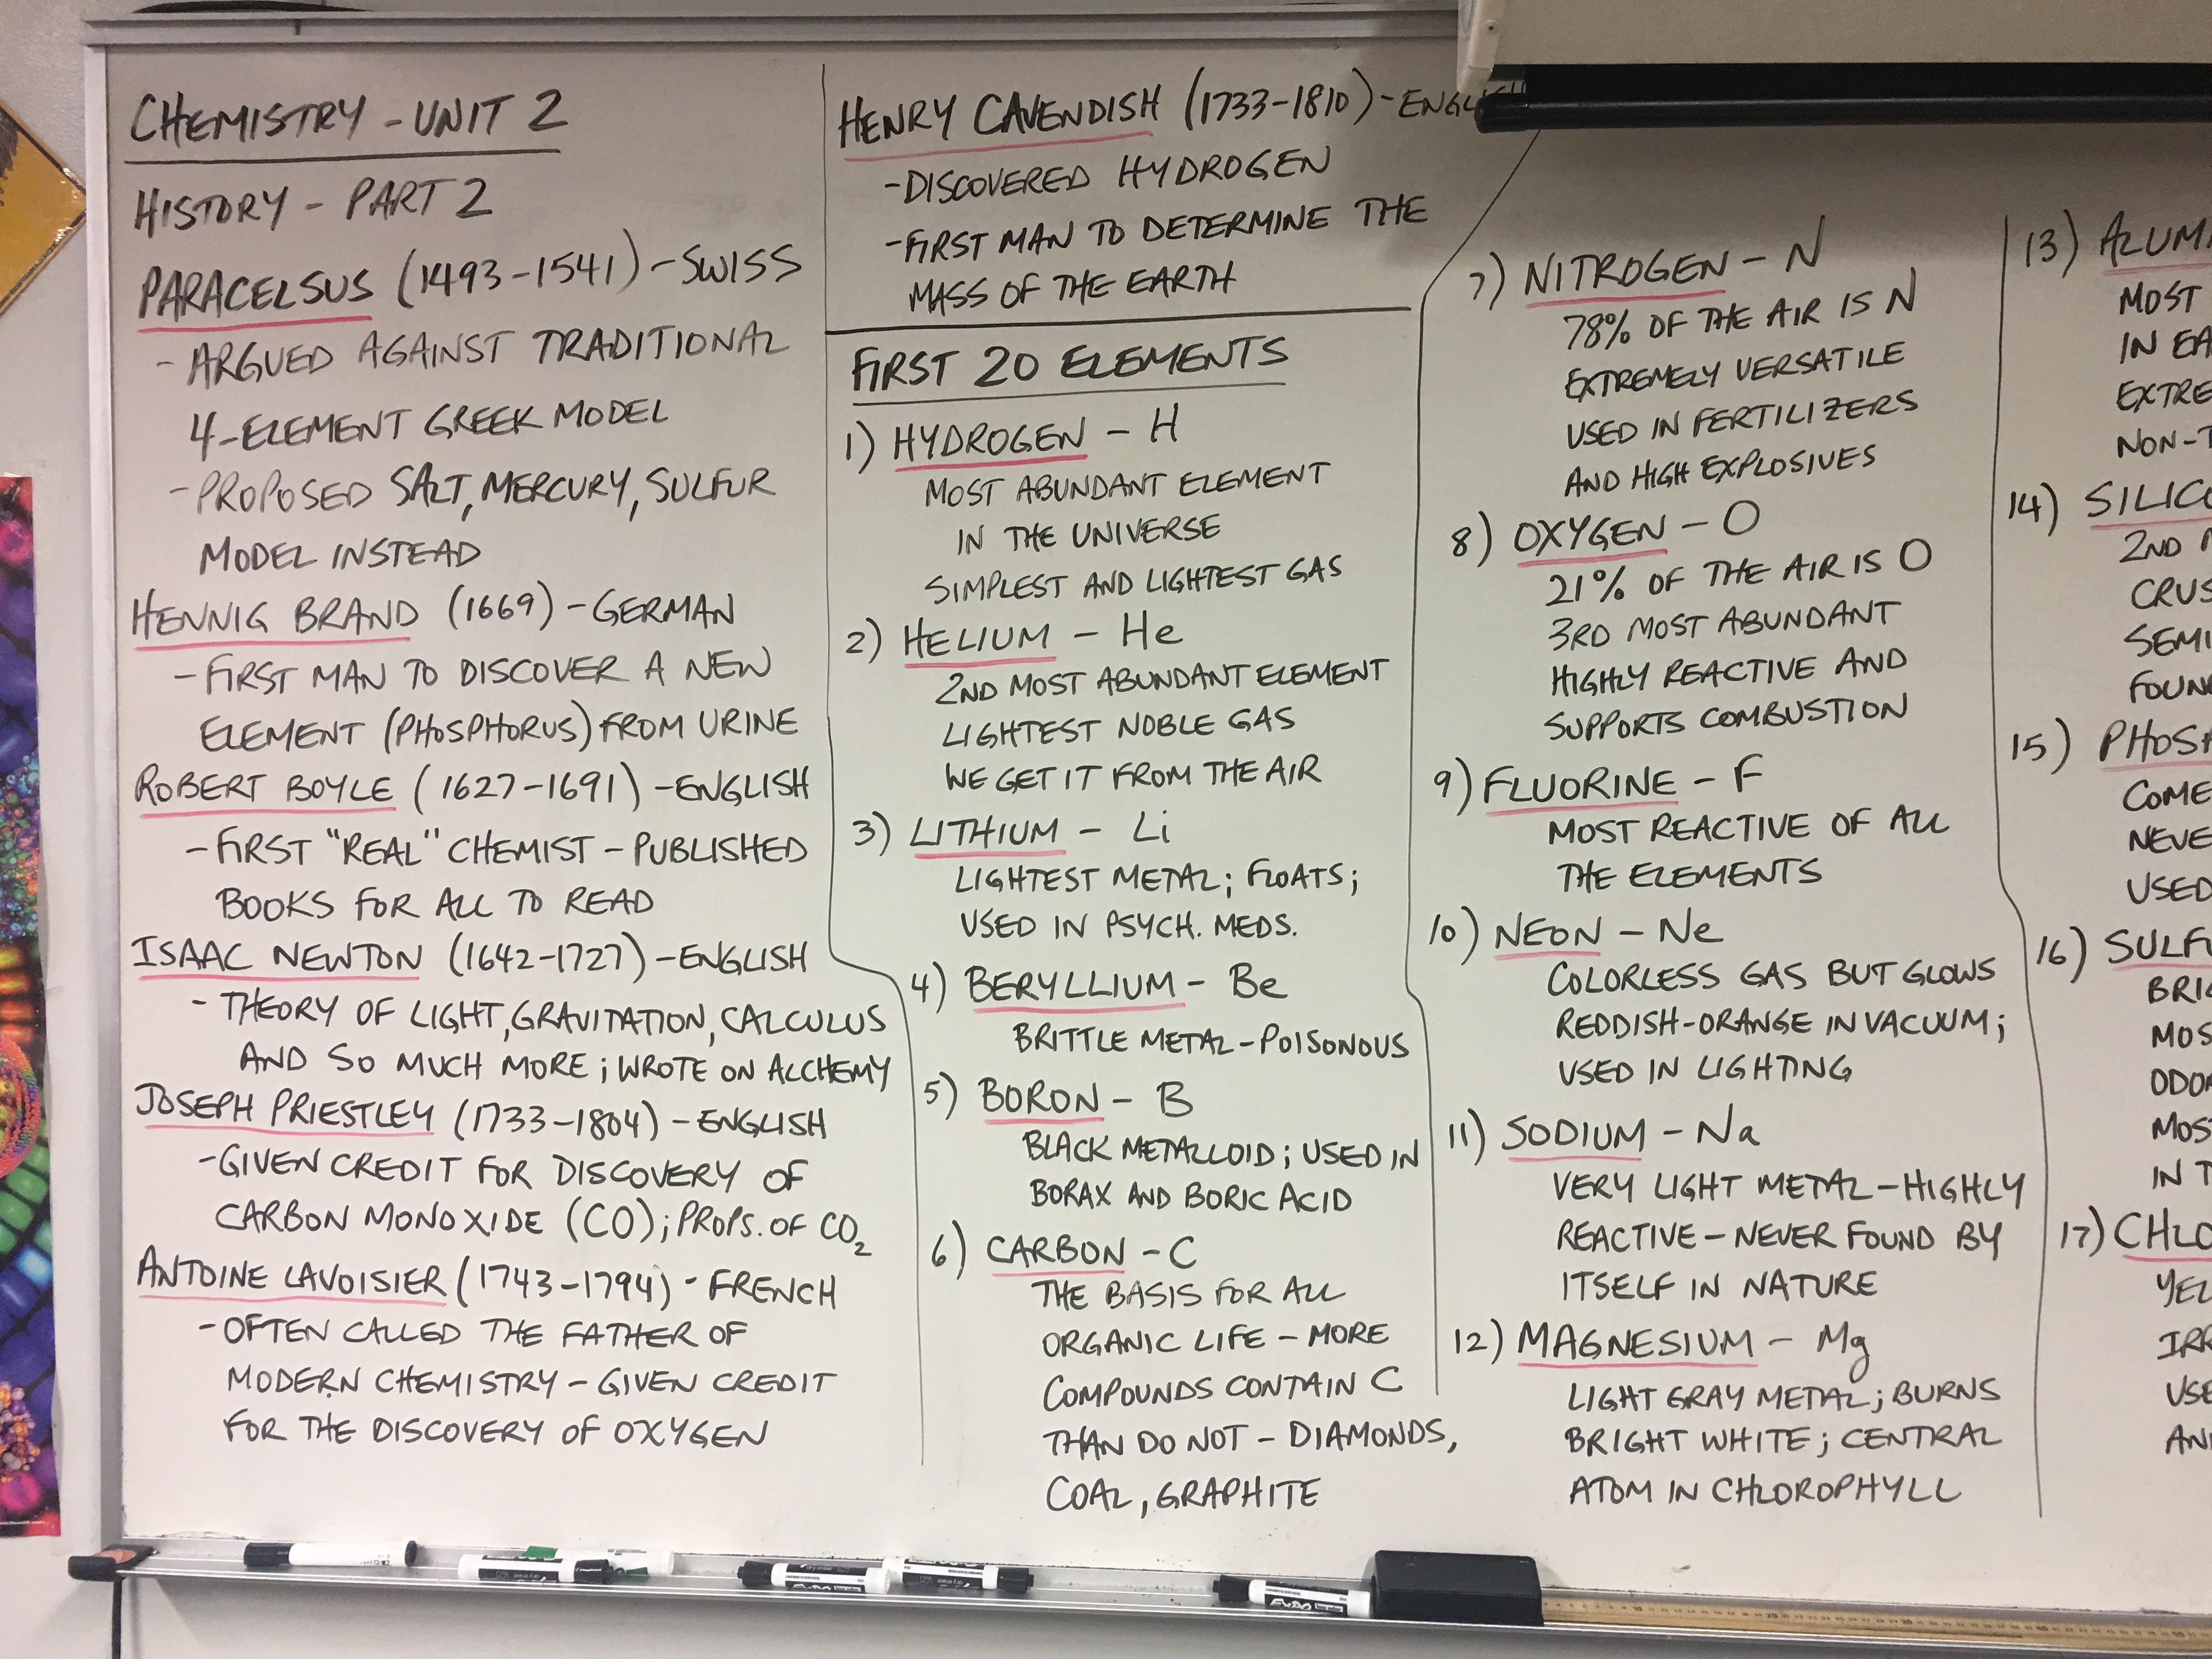 CHEMISTRY - UNIT 2
HISTORY - PART 2
PARACELSUS (1493-1541) - SWISS
- ARGUED AGAINST TRADITIONAL
4-ELEMENT GREEK MODEL
- PROPOSED SALT, MERCURY, SULFUR
MODEL INSTEAD
HENNIG BRAND (1669) - GERMAN
- FIRST MAN TO DISCOVER A NEW
ELEMENT (PHOSPHORUS) FROM URINE
ROBERT BOYLE (1627-1691) - ENGLISH
- FIRST "REAL" CHEMIST - PUBLISHED
BOOKS FOR ALL TO READ
ISAAC NEWTON (1642-1727) - ENGLISH
- THEORY OF LIGHT, GRAVITATION, CALCULUS
AND SO MUCH MORE; WROTE ON ALCHEMY
JOSEPH PRIESTLEY (1733-1804) - ENGLISH
- GIVEN CREDIT FOR DISCOVERY OF
CARBON MONOXIDE (CO); PROPS. OF CO₂
ANTOINE LAVOISIER (1743-1794) - FRENCH
- OFTEN CALLED THE FATHER OF
MODERN CHEMISTRY - GIVEN CREDIT
FOR THE DISCOVERY OF OXYGEN
HENRY CAVENDISH (1733-1810) - ENGLISH
- DISCOVERED HYDROGEN
- FIRST MAN TO DETERMINE THE
MASS OF THE EARTH
FIRST 20 ELEMENTS
1) HYDROGEN - H
MOST ABUNDANT ELEMENT
IN THE UNIVERSE
SIMPLEST AND LIGHTEST GAS
2) HELIUM - He
2ND MOST ABUNDANT ELEMENT
LIGHTEST NOBLE GAS
WE GET IT FROM THE AIR
3) LITHIUM - Li
LIGHTEST METAL; FLOATS;
USED IN PSYCH. MEDS.
4) BERYLLIUM - Be
BRITTLE METAL - POISONOUS
5) BORON - B
BLACK METALLOID; USED IN
BORAX AND BORIC ACID
6) CARBON - C
THE BASIS FOR ALL
ORGANIC LIFE - MORE
COMPOUNDS CONTAIN C
THAN DO NOT - DIAMONDS,
COAL, GRAPHITE
7) NITROGEN - N
78% OF THE AIR IS N
EXTREMELY VERSATILE
USED IN FERTILIZERS
AND HIGH EXPLOSIVES
8) OXYGEN - O
21% OF THE AIR IS O
3RD MOST ABUNDANT
HIGHLY REACTIVE AND
SUPPORTS COMBUSTION
9) FLUORINE - F
MOST REACTIVE OF ALL
THE ELEMENTS
10) NEON - Ne
COLORLESS GAS BUT GLOWS
REDDISH-ORANGE IN VACUUM;
USED IN LIGHTING
11) SODIUM - Na
VERY LIGHT METAL - HIGHLY
REACTIVE - NEVER FOUND BY
ITSELF IN NATURE
12) MAGNESIUM - Mg
LIGHT GRAY METAL; BURNS
BRIGHT WHITE; CENTRAL
ATOM IN CHLOROPHYLL
13) ALUM
MOST
IN EA
EXTRE
NON-T
14) SILIC
2ND
CRUS
SEMI
FOUN
15) PHOSP
COME
NEVE
USED
16) SULF
BRIG
MOS
ODO
MOS
IN T
17) CHLO
YEL
IRR
USE
AN